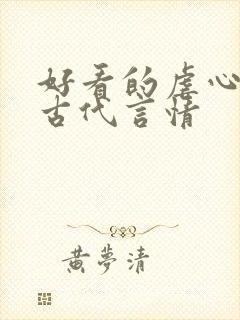 好看的虐心
古代言情
黄夢清